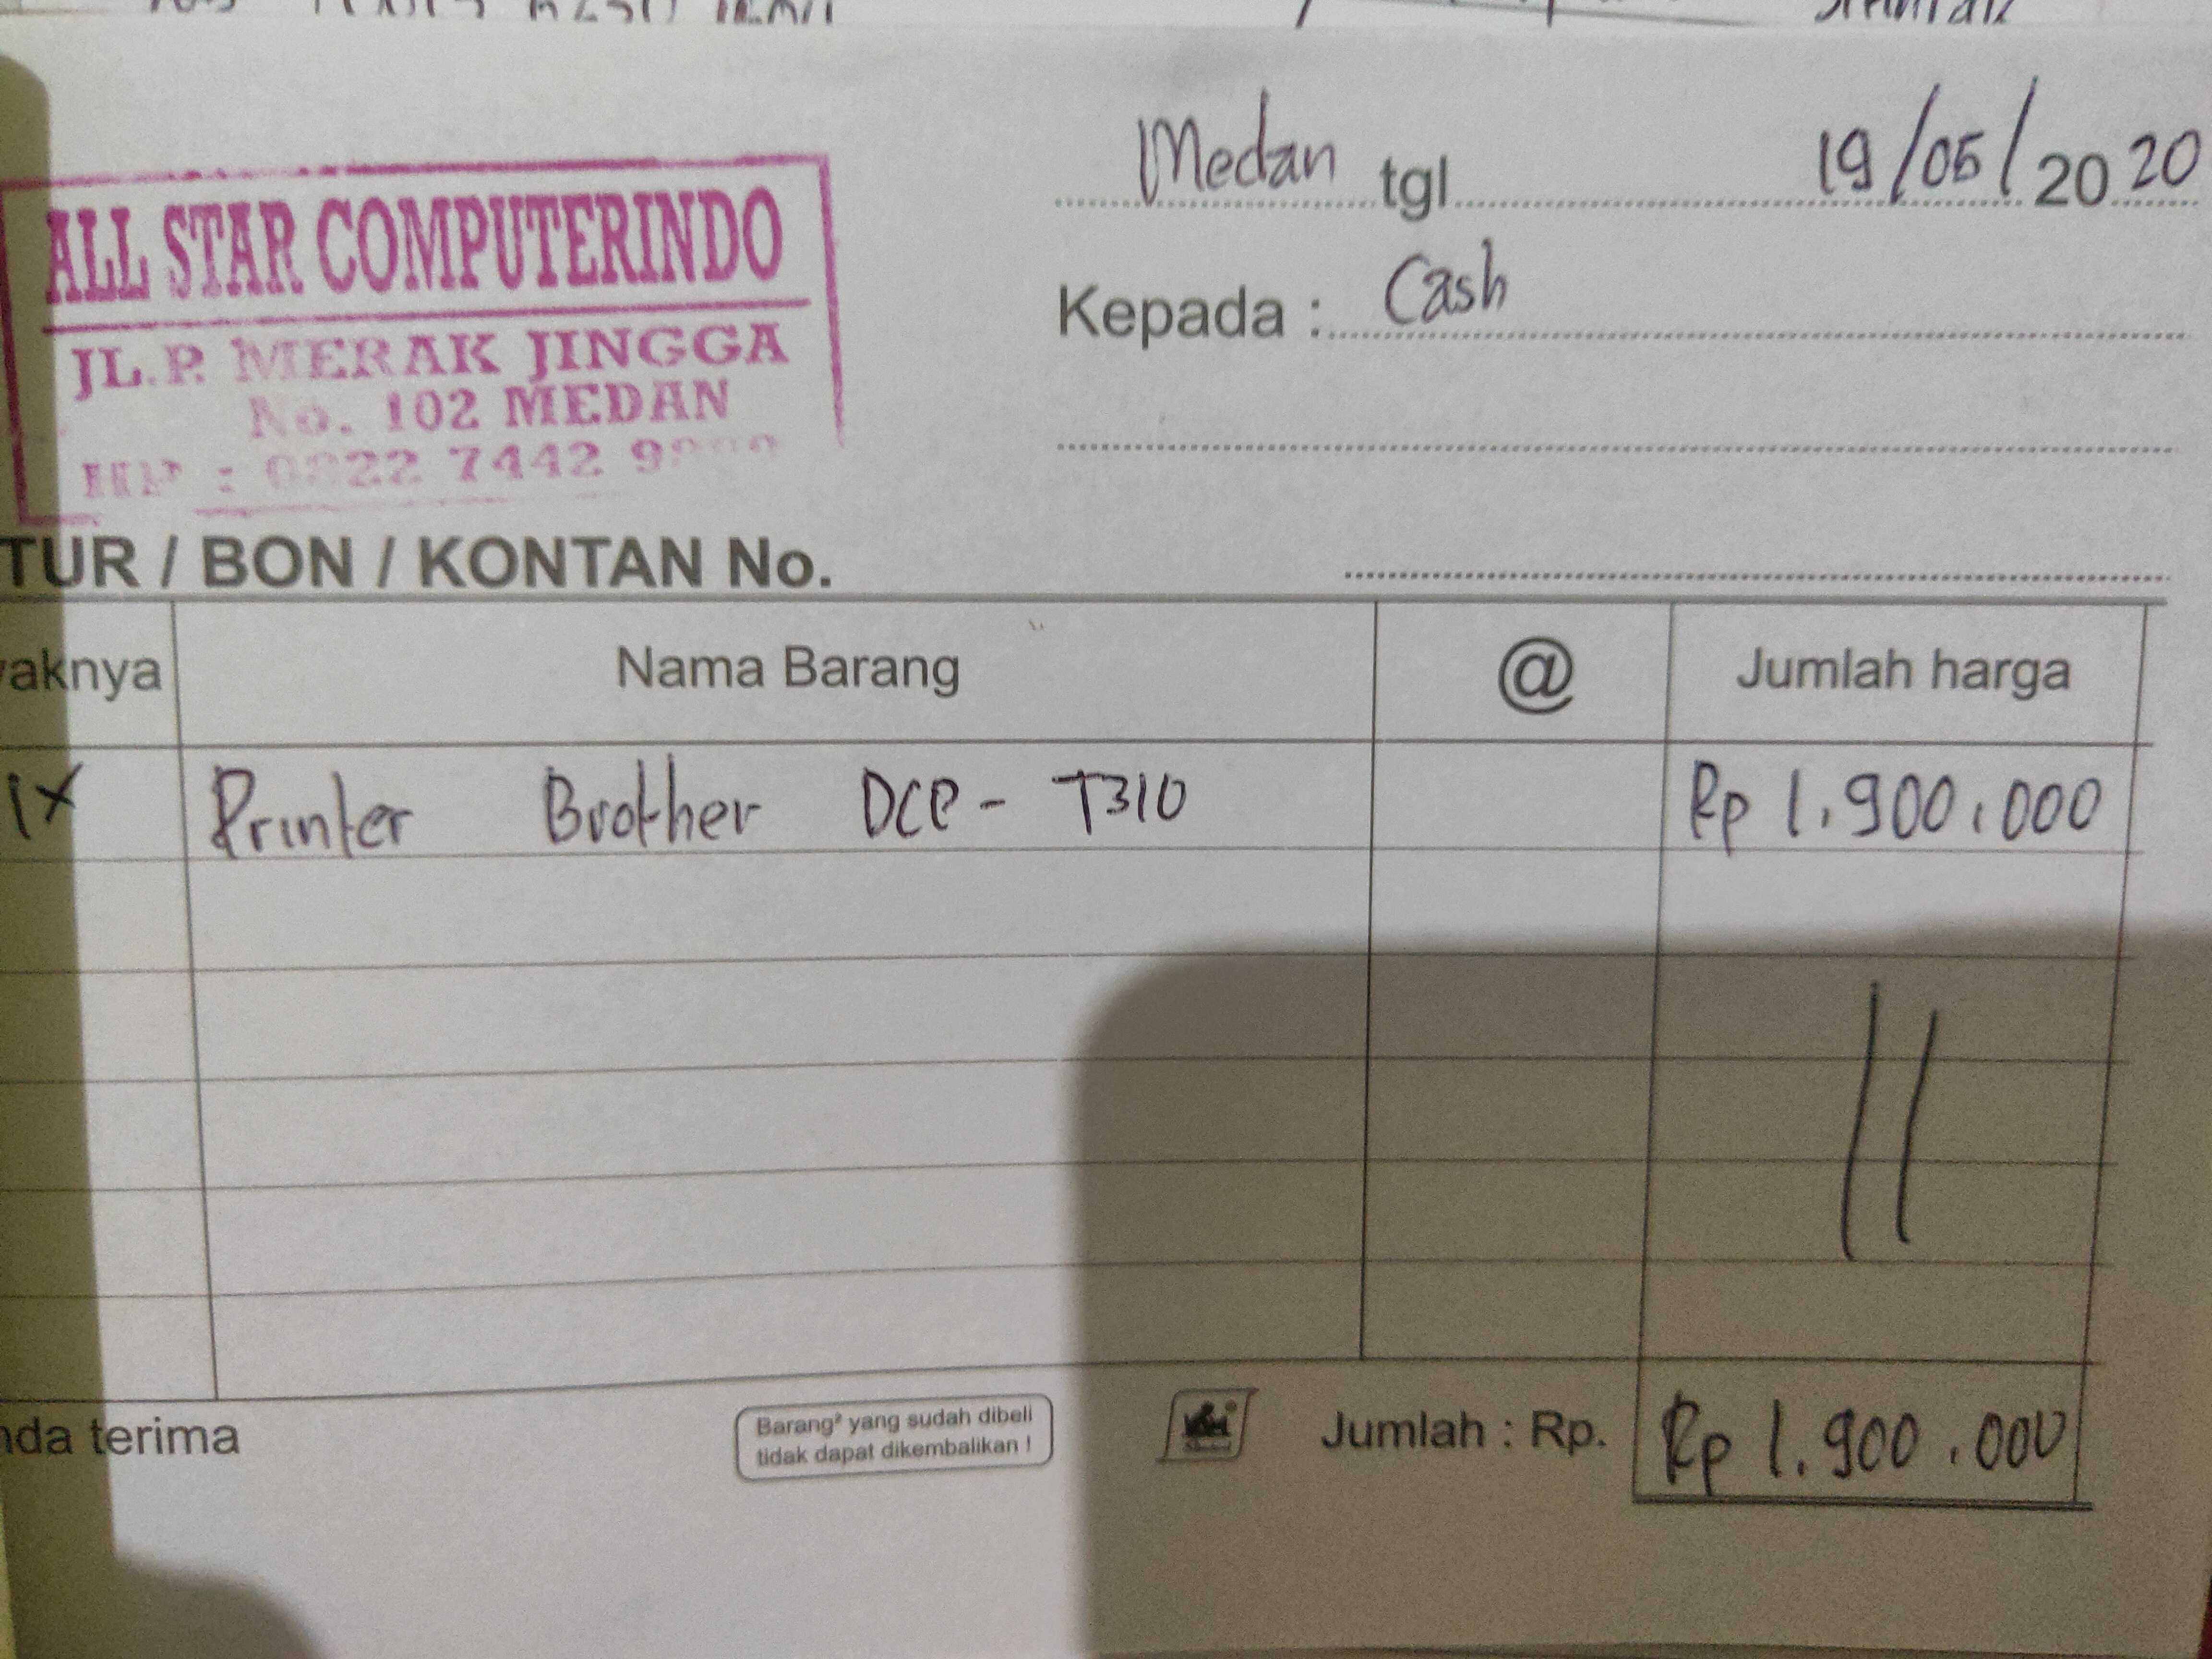 Medan tgl 19/05/2020
ALL STAR COMPUTERINDO
JL.P. MERAK JINGGA
No. 102 MEDAN
HP : 0822 7442
Kepada : Cash
TUR / BON / KONTAN No.
yaknya Nama Barang @ Jumlah harga
1x Printer Brother DCP - T310 Rp 1.900.000
nda terima
Barang² yang sudah dibeli
tidak dapat dikembalikan !
Jumlah : Rp. Rp 1.900.000